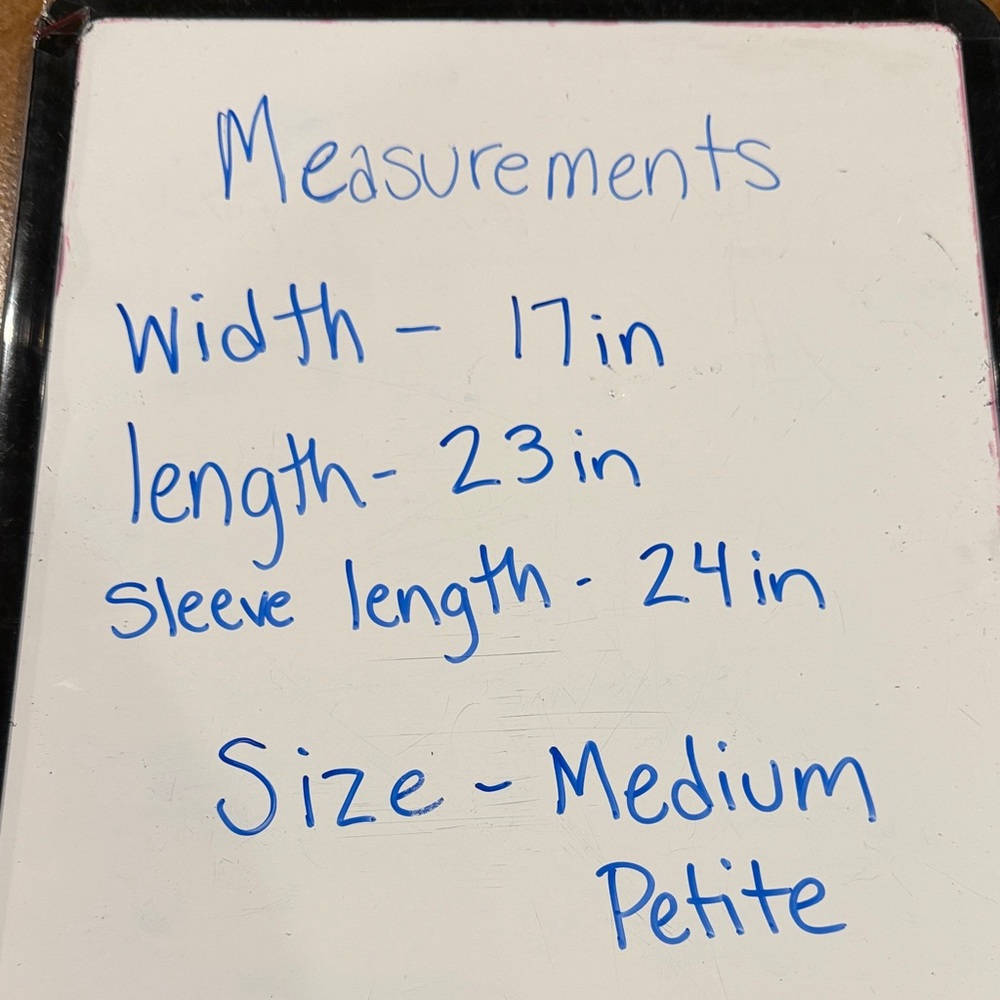 Measurements
Width - 17in
length - 23in
Sleeve length - 24in
Size - Medium
Petite